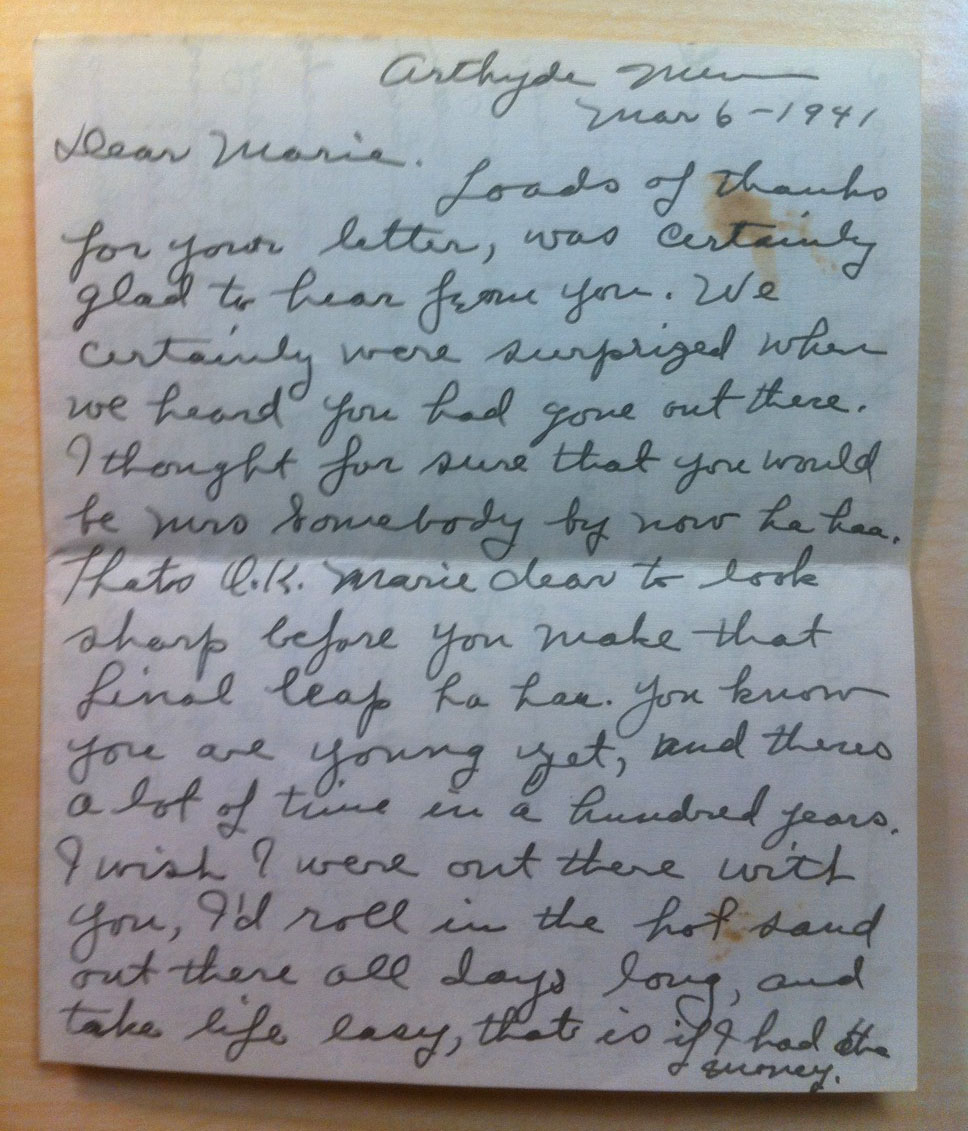 Arthyde Minn
Mar 6-1941
Dear Marie.
Loads of thanks
for your letter, was certainly
glad to hear from you. We
certainly were surprized when
we heard you had gone out there.
I thought for sure that you would
be Mrs Somebody by now ha haa.
Thats O.K. Marie dear to look
sharp before you make that
final leap ha haa. You know
you are young yet, and theres
a lot of time in a hundred years.
I wish I were out there with
you, I'd roll in the hot sand
out there all days long, and
take life easy, that is if I had the
money.